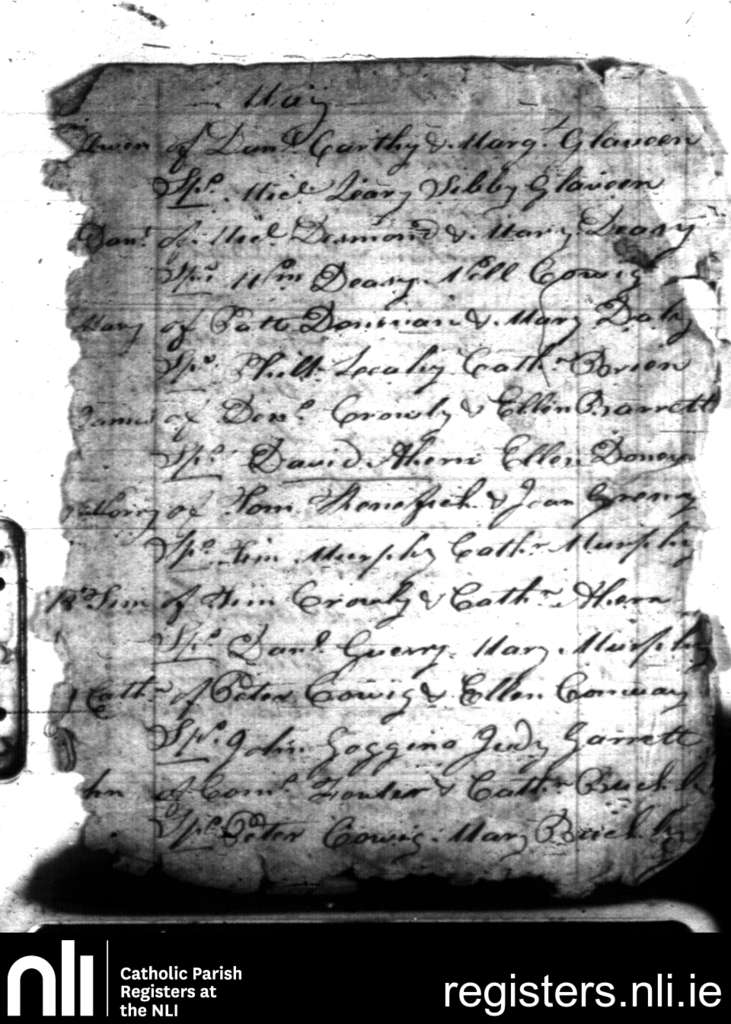 May
Owen of Danl. Carthy & Margt. Glaveen
Sps. Michl. Leary Sibby Glaveen
Danl. of Michl. Desmond & Mary Deasy
Sps. Wm Deasy Nell Cowig
Mary of Patt Donovan & Mary Daly
Sps. Phill Leahy Cathn. Brien
James of Denl. Crowly & Ellin Barrett
Sps. David Ahern Ellen
of Tom & Joan
Sps. Tim Murphy Cathn. Murphy
Tim of Tim Crowly & Cathn. Ahern
Sps. Danl. Guerry Mary Murphy
Cathn. of Peter Cowig & Ellen Conway
Sps. John Goggin Judy Garrett
of Corns. & Cathn. Buckly
Sps. Peter Cowig Mary Buckly
nli
Catholic Parish
Registers at
the NLI
registers.nli.ie